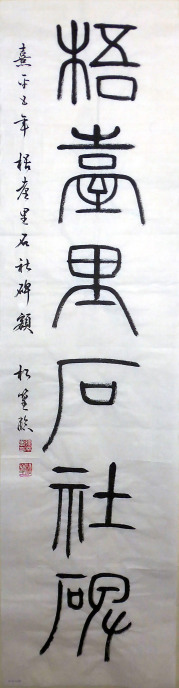 梧臺里石社碑
熹平五年 梧臺里石社碑額 臨